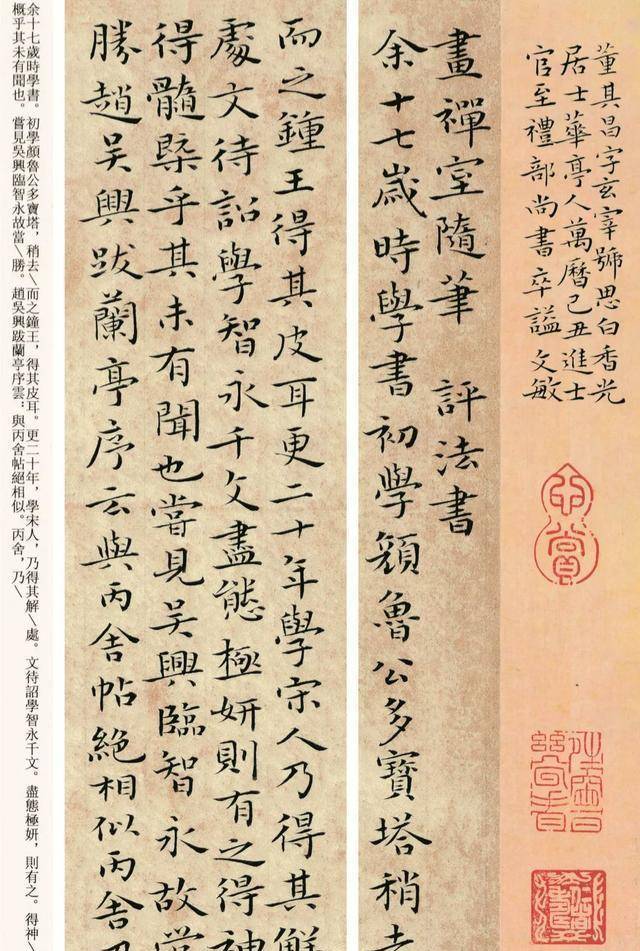 董其昌字玄宰號思白香光
居士華亭人萬曆己丑進士
官至禮部尚書卒謚文敏
畫禪室隨筆 評法書
余十七歲時學書初學顏魯公多寶塔稍去
而之鍾王得其皮耳更二十年學宋人乃得其解
處文待詔學智永千文盡態極妍則有之得神
得髓槩乎其未有聞也嘗見吳興臨智永故當
勝趙吳興跋蘭亭序云與丙舍帖絕相似丙舍乃
余十七歲時學書。初學顏魯公多寶塔，稍去\而之鐘王，得其皮耳。更二十年，學宋人，乃得其解\處。文待詔學智永千文。盡態極妍，則有之。得神\
概乎其未有聞也。嘗見吳興臨智永故當\勝。趙吳興跋蘭亭序雲：與丙舍帖絕相似。丙舍，乃\